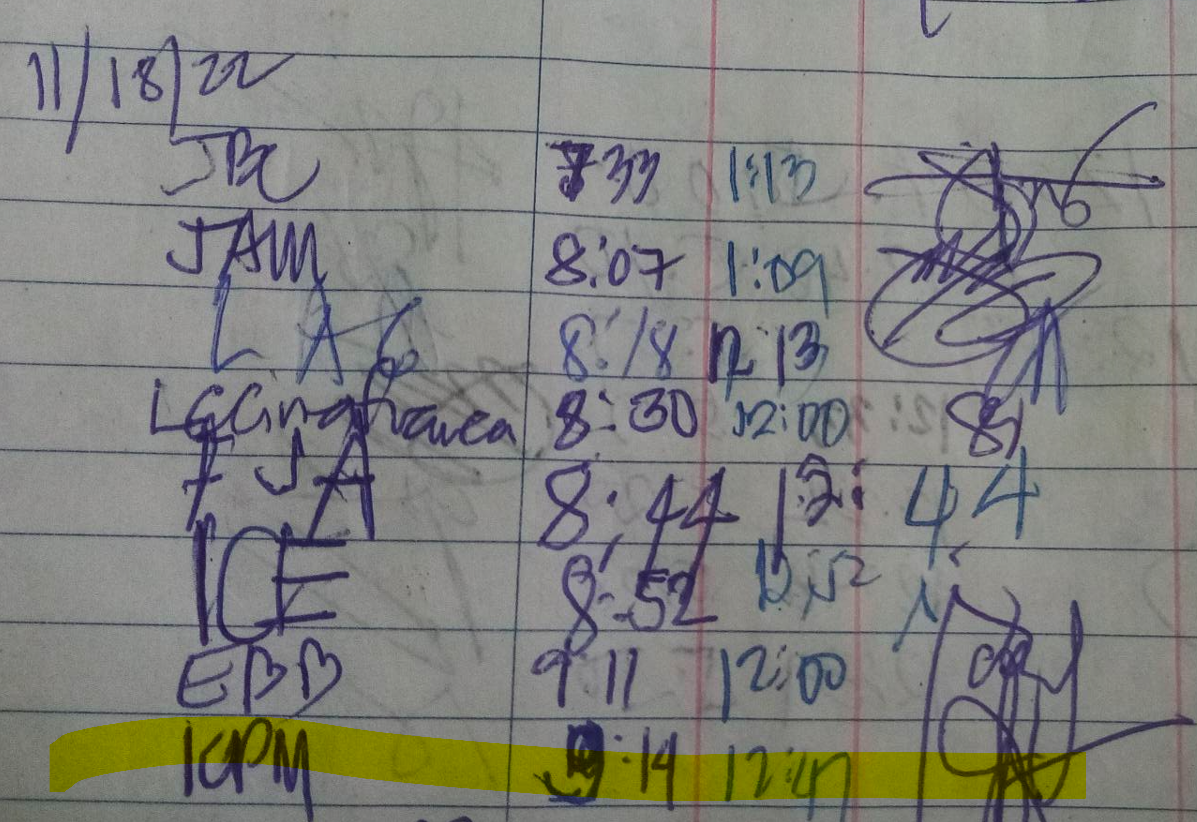 11/18/22
JBC 7:33 1:13
JAM 8:07 1:09
LAG 8:18 12:13
8:30 12:00
FJA 8:44 12:44
ICE 8:52 12:52
EBB 9:11 12:00
KPM 9:14 12:47